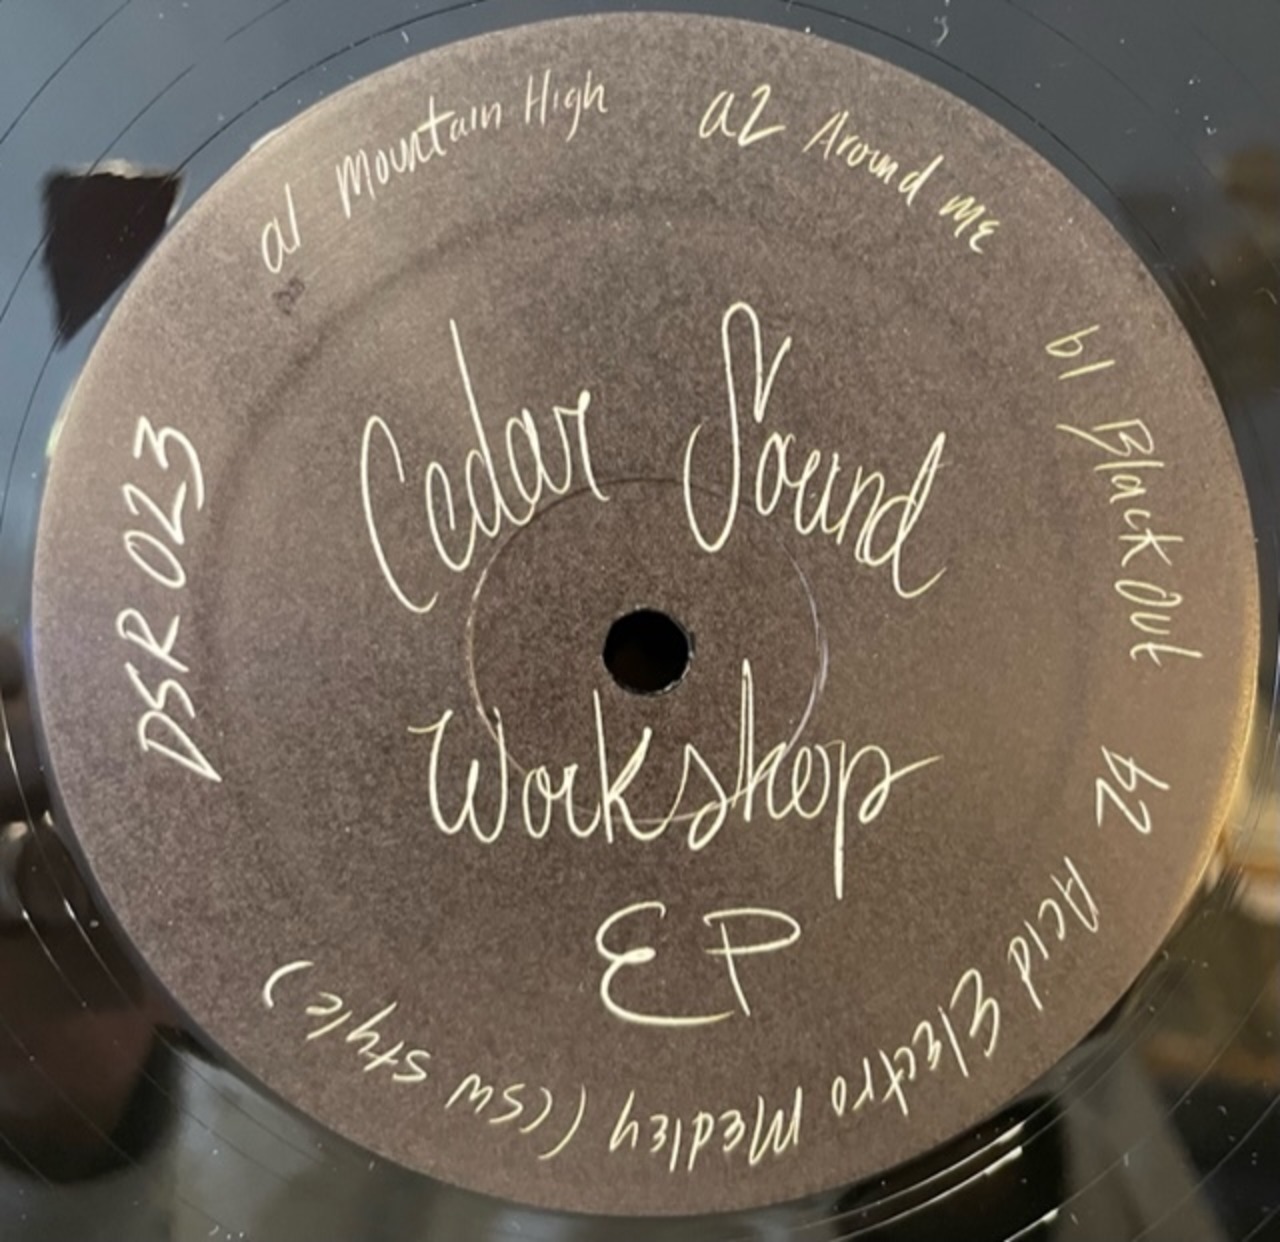 Cedar Sound
Workshop
EP
DSR 023
a1 Mountain High
a2 Around me
b1 Black Out
b2 Acid Electro Medley (CSW style)